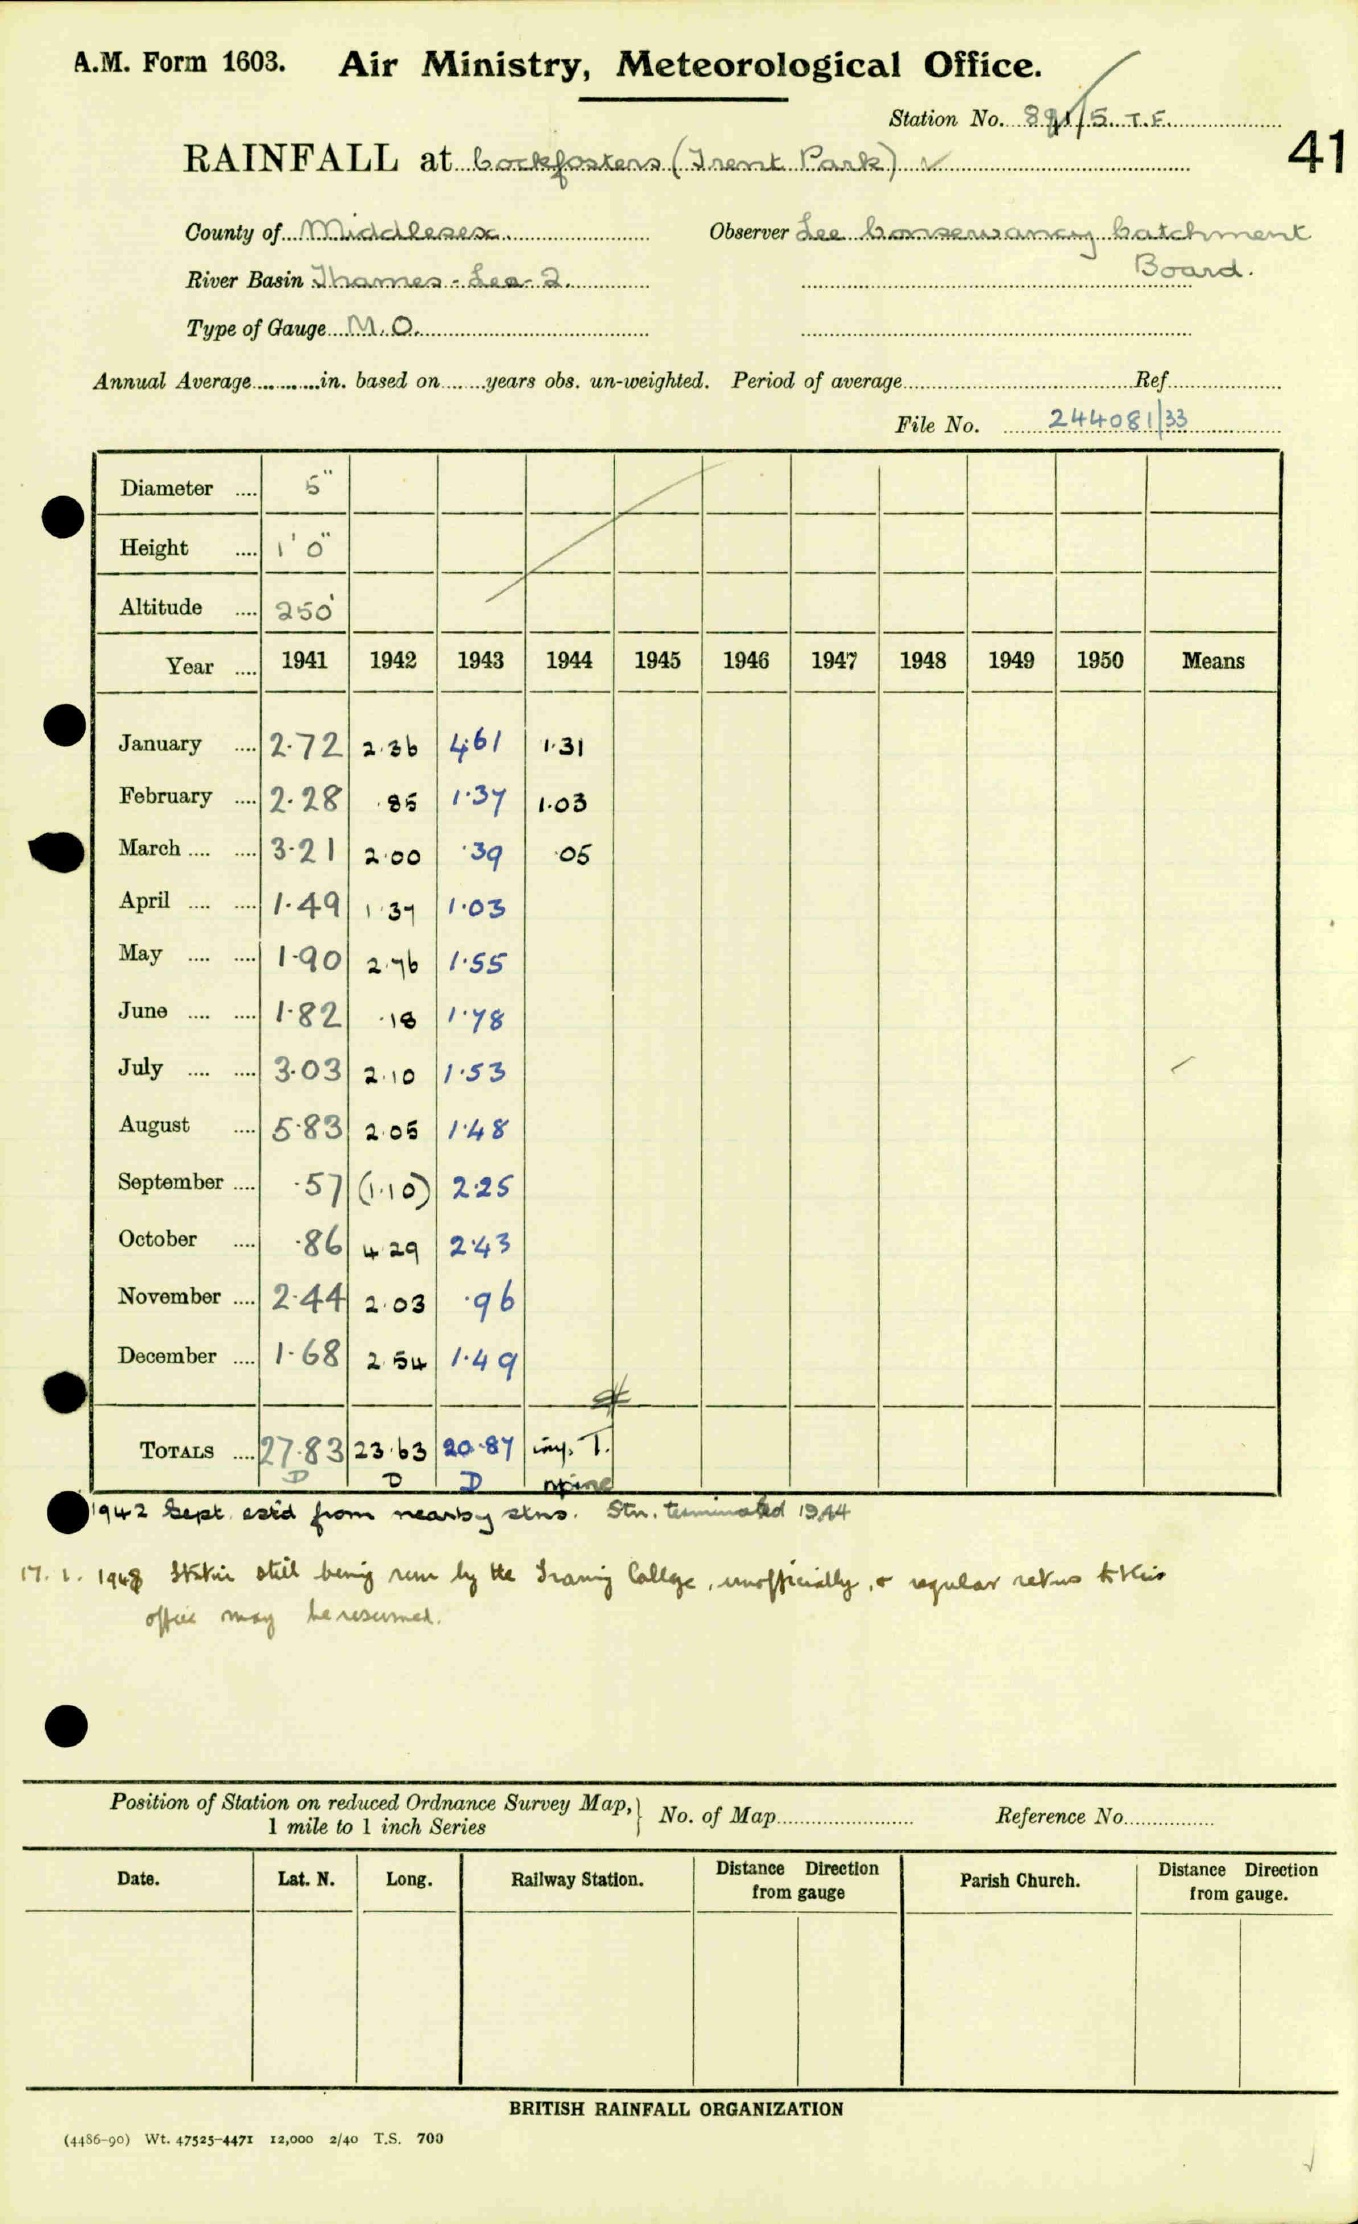 A.M. Form 1603. Air Ministry, Meteorological Office.
Station No. 841/5. T.F.
41
RAINFALL at Cockfosters (Trent Park) ✓
County of Middlesex. Observer Lee Conservancy Catchment
River Basin Thames-Lea-2. Board.
Type of Gauge M.O.
Annual Average in. based on years obs. un-weighted. Period of average Ref
File No. 244081/33
Diameter .... 5"
Height .... 1' 0"
Altitude .... 250'
Year .... 1941 1942 1943 1944 1945 1946 1947 1948 1949 1950 Means
January .... 2.72 2.36 4.61 1.31
February .... 2.28 .85 1.37 1.03
March .... .... 3.21 2.00 .39 .05
April .... .... 1.49 1.37 1.03
May .... .... 1.90 2.76 1.55
June .... .... 1.82 .18 1.78
July .... .... 3.03 2.10 1.53
August .... 5.83 2.05 1.48
September .... .57 (1.10) 2.25
October .... .86 4.29 2.43
November .... 2.44 2.03 .96
December .... 1.68 2.54 1.49
TOTALS .... 27.83 23.63 20.87 T.
D D D
1942 Sept. est'd from nearby stns. Stn. terminated 1944
17. 1. 1948 Station still being run by the Training College, unofficially, & regular returns to this
office may be resumed.
Position of Station on reduced Ordnance Survey Map,} No. of Map Reference No.
1 mile to 1 inch Series
Date. Lat. N. Long. Railway Station. Distance Direction from gauge Parish Church. Distance Direction from gauge.
BRITISH RAINFALL ORGANIZATION
(4486-90) Wt. 47525-4471 12,000 2/40 T.S. 700